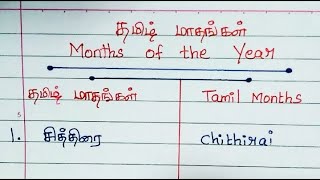 தமிழ் மாதங்கள்
Months of the Year
தமிழ் மாதங்கள் Tamil Months
1. சித்திரை chithirai